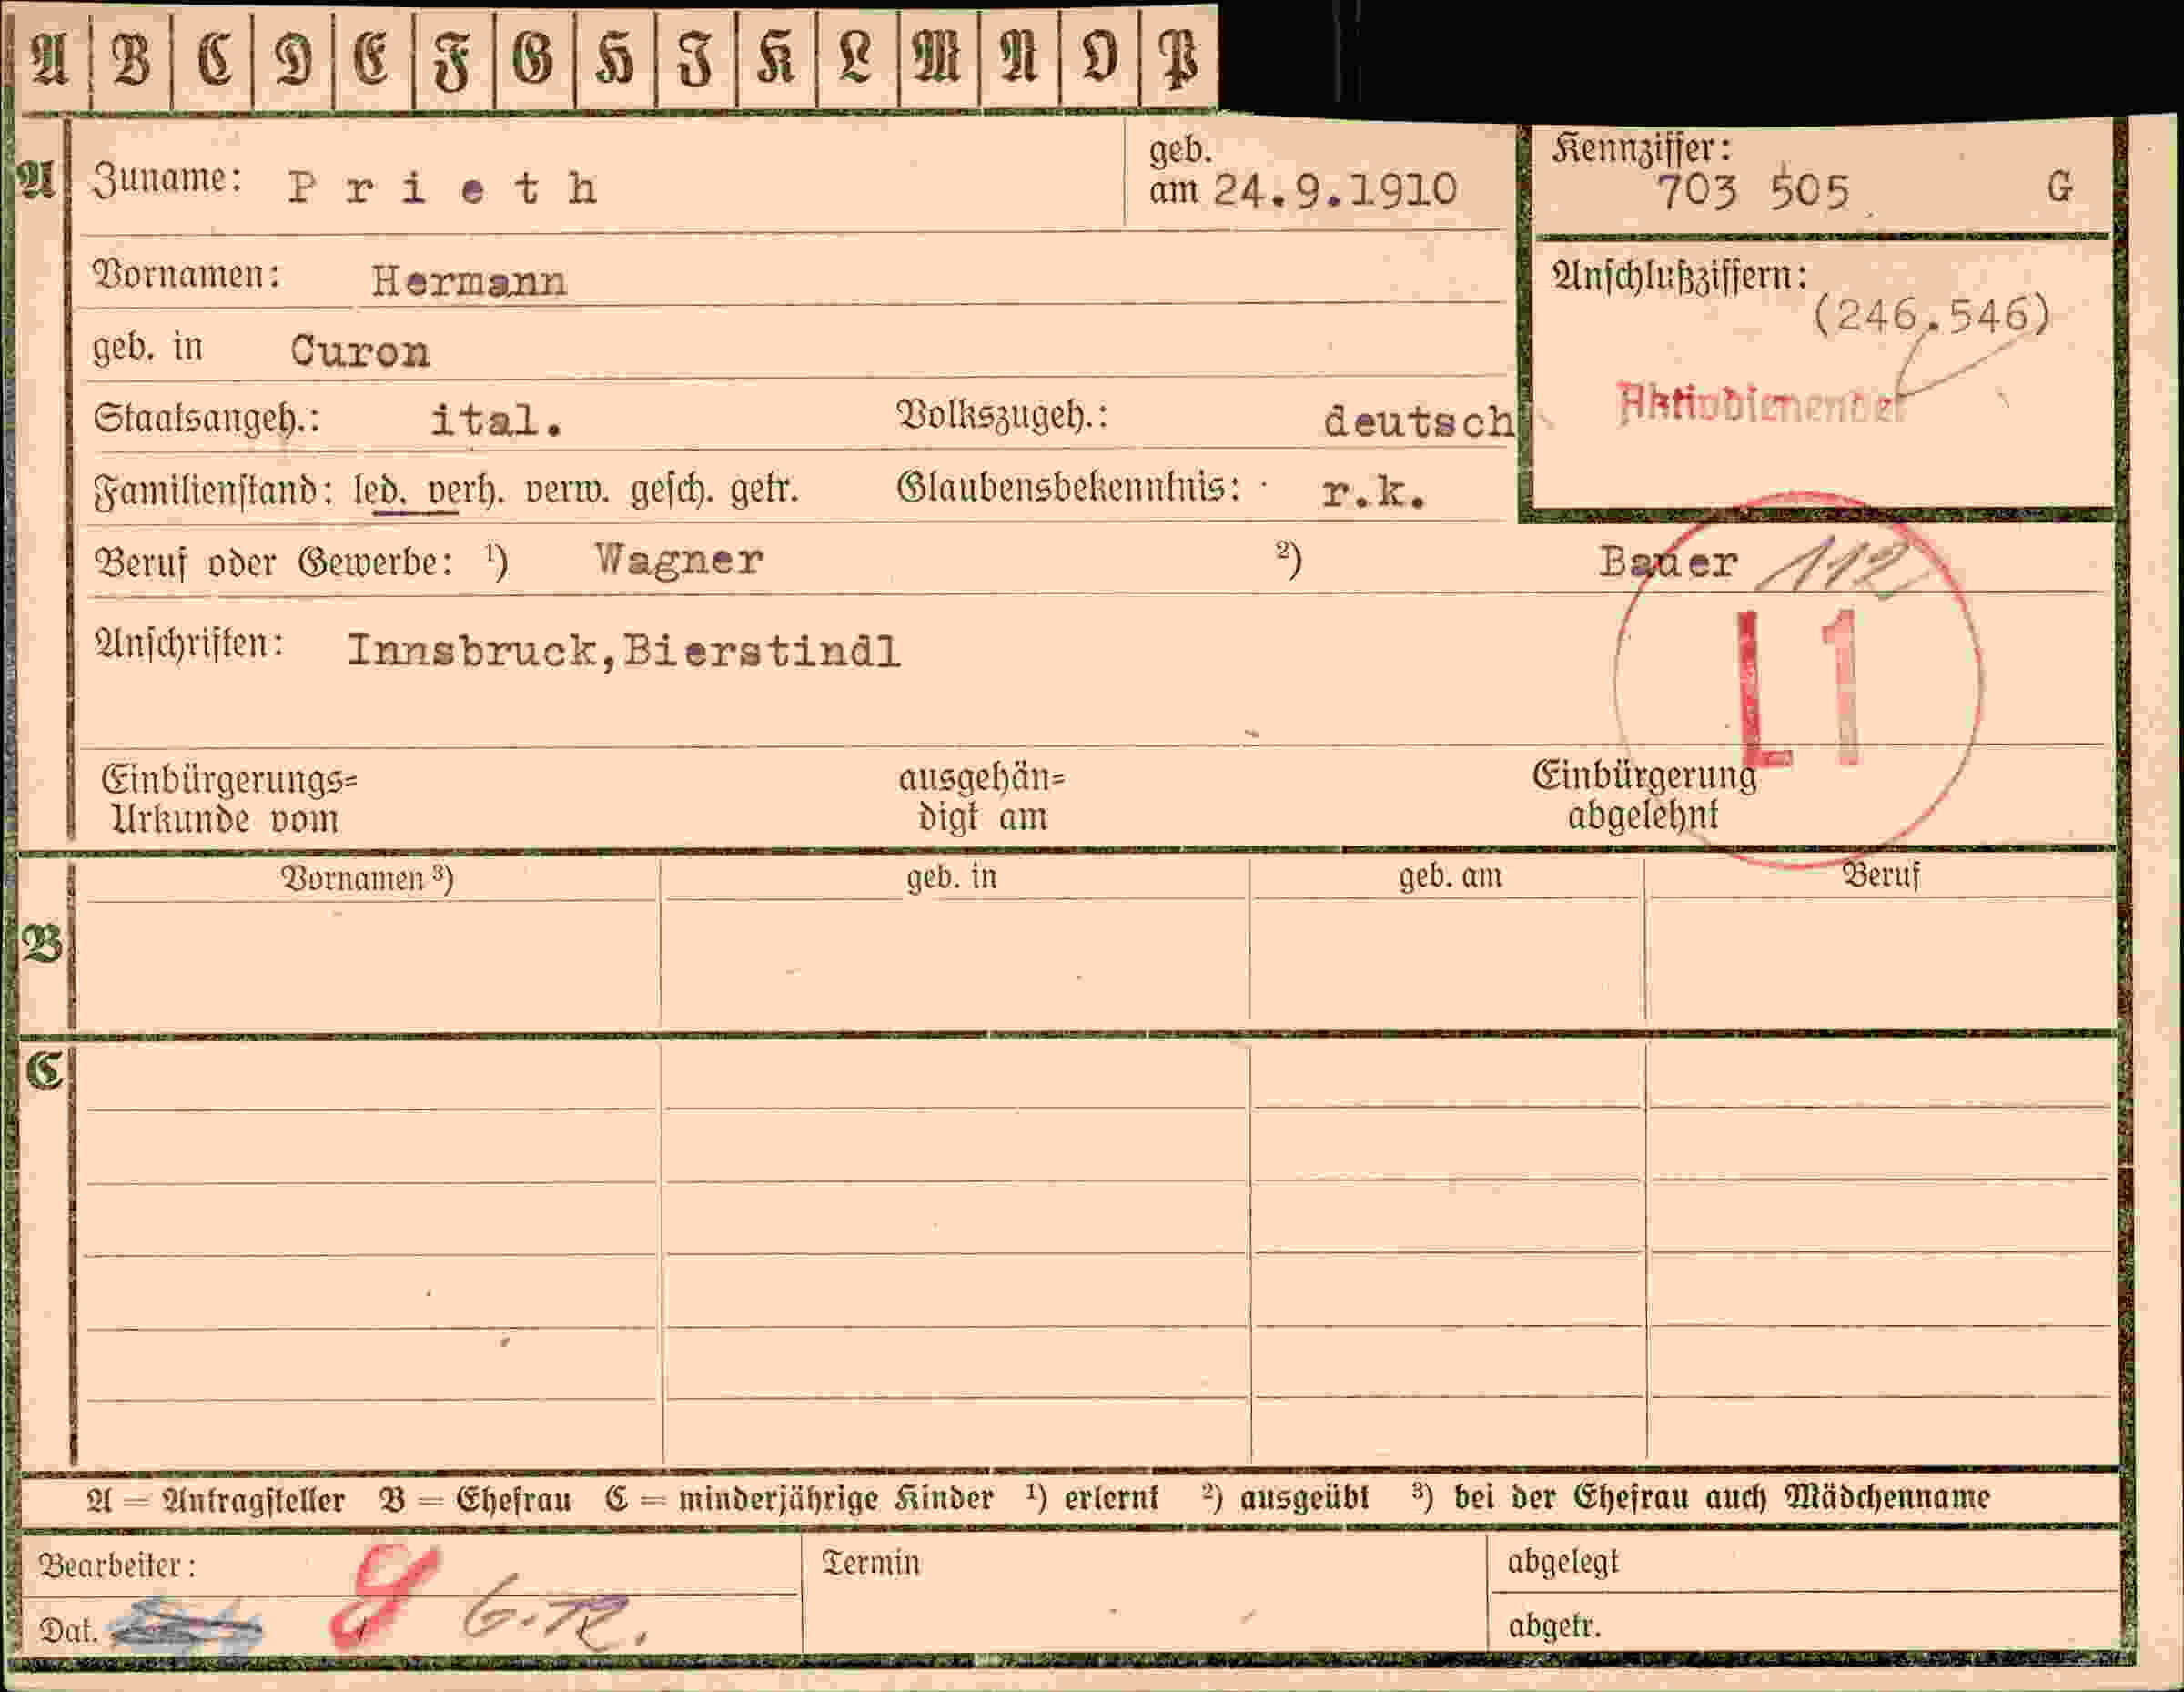 A B C D E F G H I K L M N O P
A
Zuname: Prieth
geb.
am 24.9.1910
Kennziffer:
703 505 G
Vornamen: Hermann
Anschlußziffern:
(246.546)
geb. in Curon
Aktivdienender
Staatsangeh.: ital. Volkszugeh.: deutsch
Familienstand: led. verh. verw. gesch. getr. Glaubensbekenntnis: r.k.
Beruf oder Gewerbe: ¹) Wagner ²) Bauer 112
Anschriften: Innsbruck,Bierstindl
L 1
Einbürgerungs=
Urkunde vom
ausgehän=
digt am
Einbürgerung
abgelehnt
Vornamen ³) geb. in geb. am Beruf
B
C
A = Antragsteller B = Ehefrau C = minderjährige Kinder ¹) erlernt ²) ausgeübt ³) bei der Ehefrau auch Mädchenname
Bearbeiter: Termin abgelegt
Dat. abgetr.